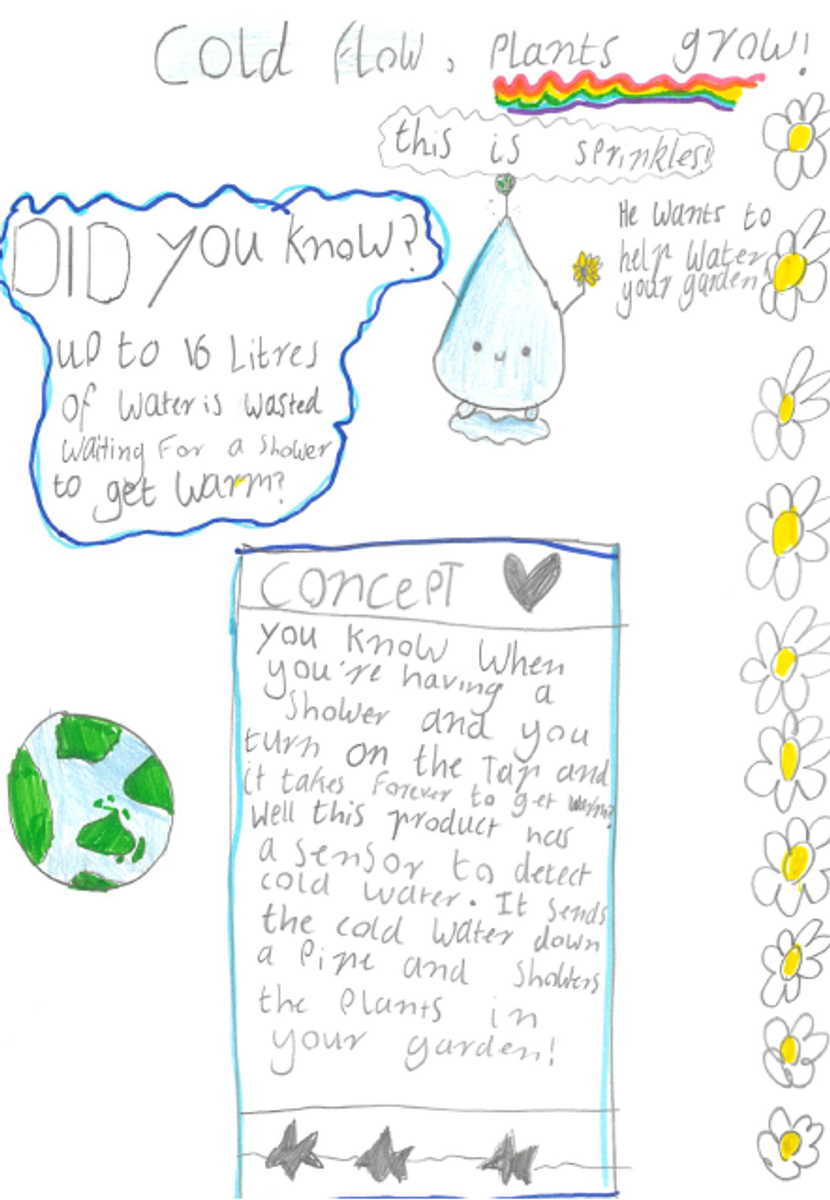 Cold flow, Plants grow!
this is sprinkles!
He wants to
help water
your garden!
DID you know?
up to 16 Litres
of water is wasted
waiting for a shower
to get warm?
CONCEPT
you know when
you're having a
shower and you
turn on the Tap and
it takes forever to get warm?
Well this product has
a sensor to detect
cold water. It sends
the cold water down
a Pipe and showers
the Plants in
your garden!